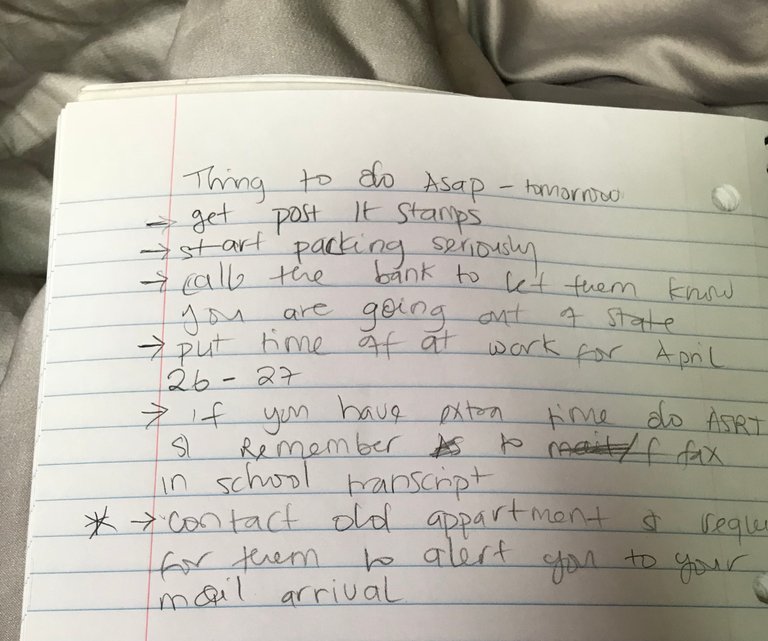 Thing to do Asap - tomorrow
→ get post It Stamps
→ start packing seriously
→ call the bank to let them know
you are going out of state
→ put time off at work for April
26 - 27
→ if you have extra time do ASRT
Remember to fax
in school transcript
* → contact old appartment & reque
for them to alert you to your
mail arrival